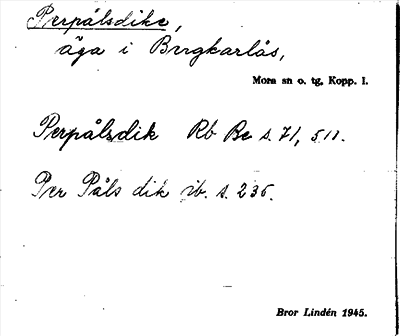 Perpålsdike,
äga i Bergkarlås,
Mora sn o. tg, Kopp. l.
Perpålsdik Rb Be s. 71, 511.
Per Påls dik ib. s. 236.
Bror Lindén 1945.